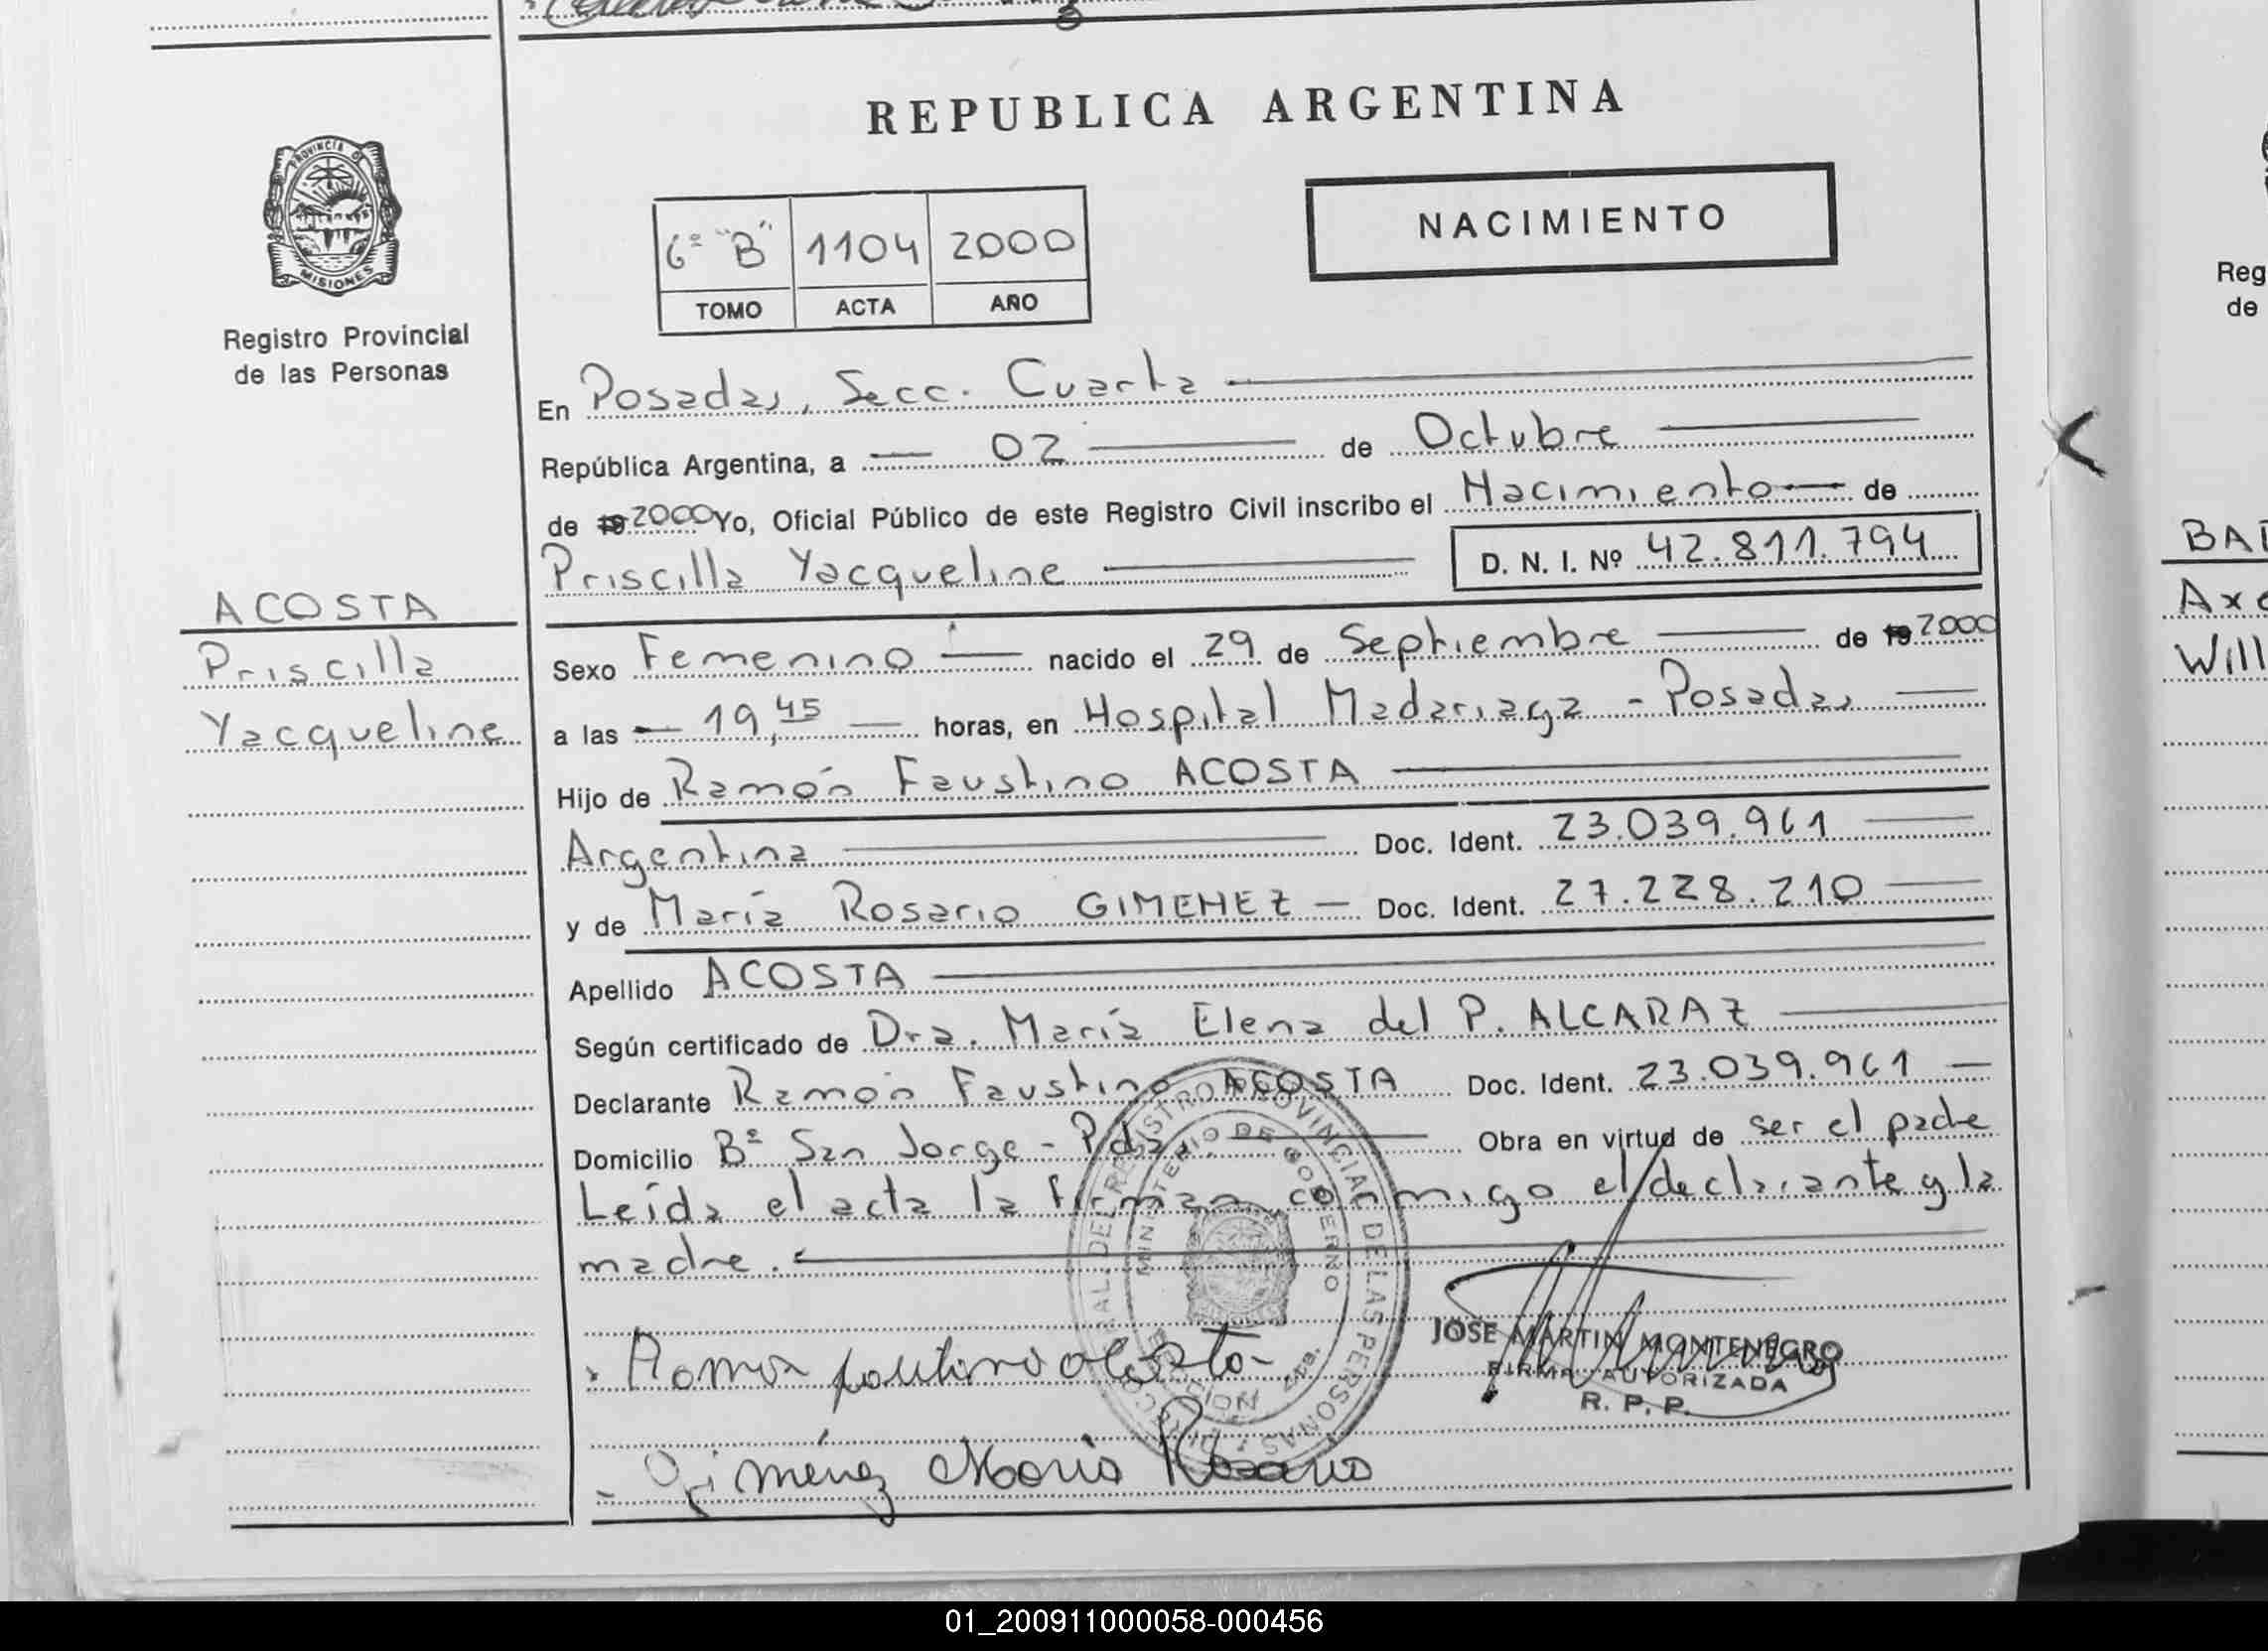 REPUBLICA ARGENTINA
PROVINCIA DE
MISIONES
Registro Provincial
de las Personas
6º "B" 1104 2000
TOMO ACTA AÑO
NACIMIENTO
En Posadas, Secc. Cuarta
República Argentina, a 02 de Octubre
de 19 2000 Yo, Oficial Público de este Registro Civil inscribo el Nacimiento de
Priscilla Yacqueline D. N. I. Nº 42.811.794
ACOSTA
Priscilla
Yacqueline
Sexo Femenino nacido el 29 de Septiembre de 19 2000
a las 19,45 horas, en Hospital Madariaga - Posadas
Hijo de Ramón Faustino ACOSTA
Argentina Doc. Ident. 23.039.961
y de María Rosario GIMENEZ Doc. Ident. 27.228.210
Apellido ACOSTA
Según certificado de Dra. María Elena del P. ALCARAZ
Declarante Ramón Faustino ACOSTA Doc. Ident. 23.039.961
Domicilio Bº San Jorge - Pdas. Obra en virtud de ser el padre
Leída el acta la firman conmigo el declarante y la
madre.
REGISTRO PROVINCIAL DE LAS PERSONAS
MINISTERIO DE GOBIERNO
JOSE MARTIN MONTENEGRO
FIRMA AUTORIZADA
R. P. P.
Giménez María Rosario
Reg
de
BA
Axe
Will
01_200911000058-000456